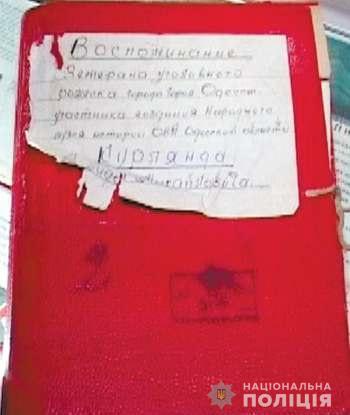 Воспоминание
Ветерана уголовного
розыска города Героя Одесст
участника создания Народного
музея истории ОВД Одесской области
Курлянда
НАЦІОНАЛЬНА
ПОЛІЦІЯ